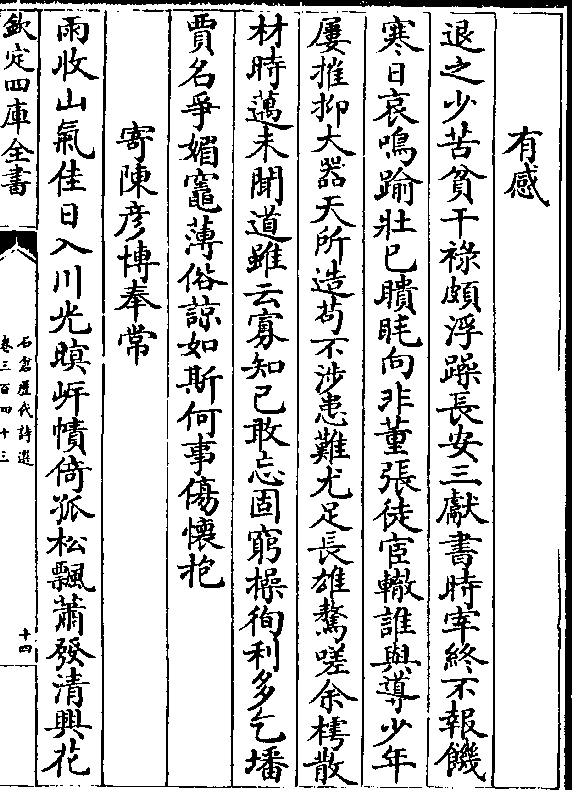 有感
退之少苦貧干祿頗浮躁長安三獻書時宰終不報饑
寒日哀鳴踰壯已瞶眊向非董張徒宦轍誰與導少年
屢摧抑大器天所造茍不涉患難尤足長雄驁嗟余樗散
材時邁未聞道雖云寡知己敢忘固窮操徇利多乞墦
賈名爭媚竈薄俗諒如斯何事傷懷抱
寄陳彥博奉常
雨收山氣佳日入川光暝岸幘倚孤松飄蕭發清興花
欽定四庫全書
石倉歷代詩選
卷三百四十三
十四